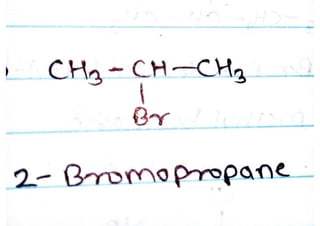 CH₃-CH-CH₃
|
Br
2-Bromopropane